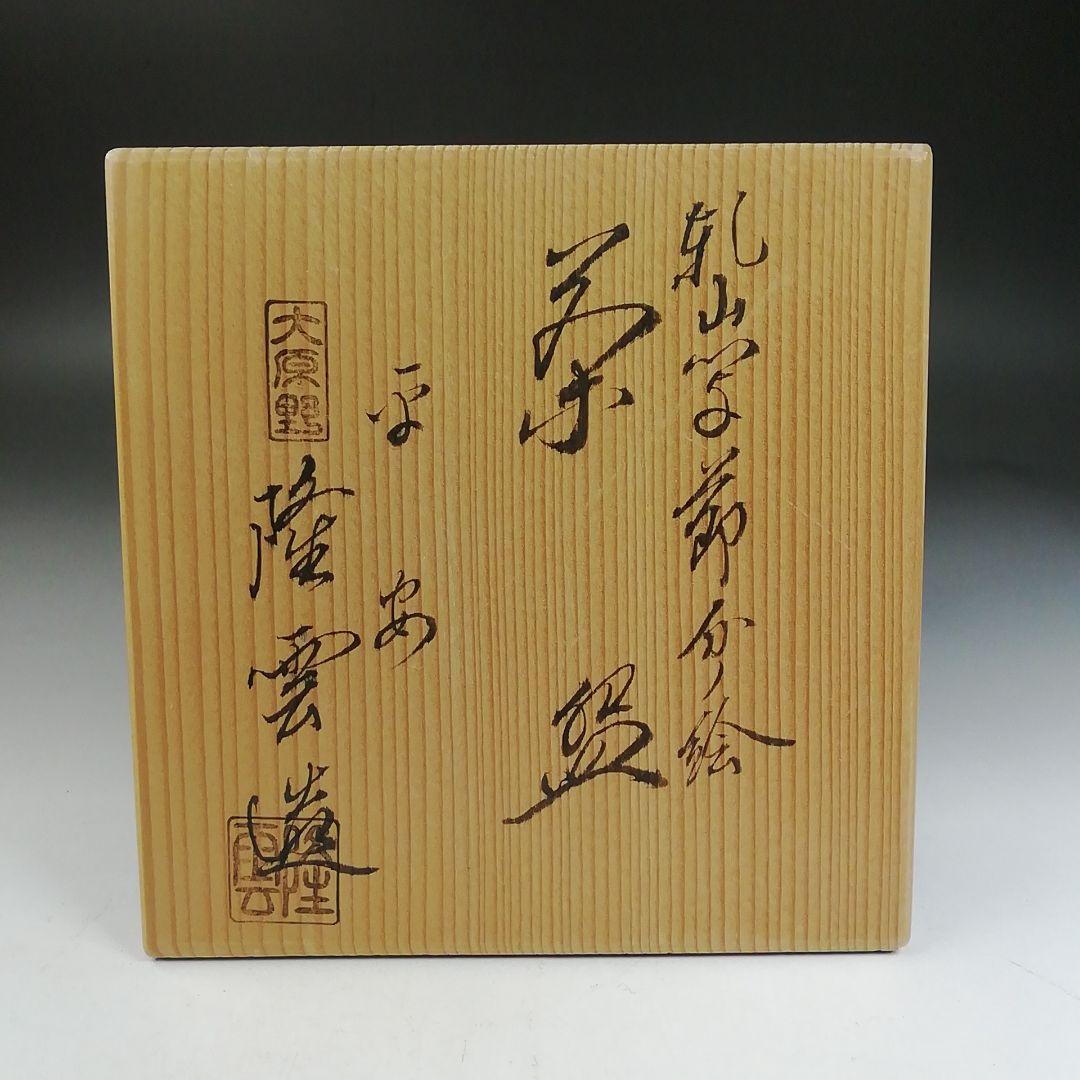 乾山写節分絵
茶盌
平安
大原野
隆雲造
隆雲